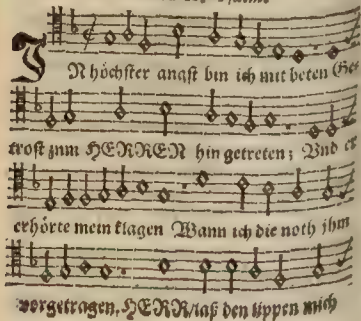 IN höchster angst bin ich mit beten Ge=
trost zum HERREN hin getreten; Vnd er
erhörte mein klagen Wann ich die noth jhm
vorgetragen. HERR/laß den lippen mich